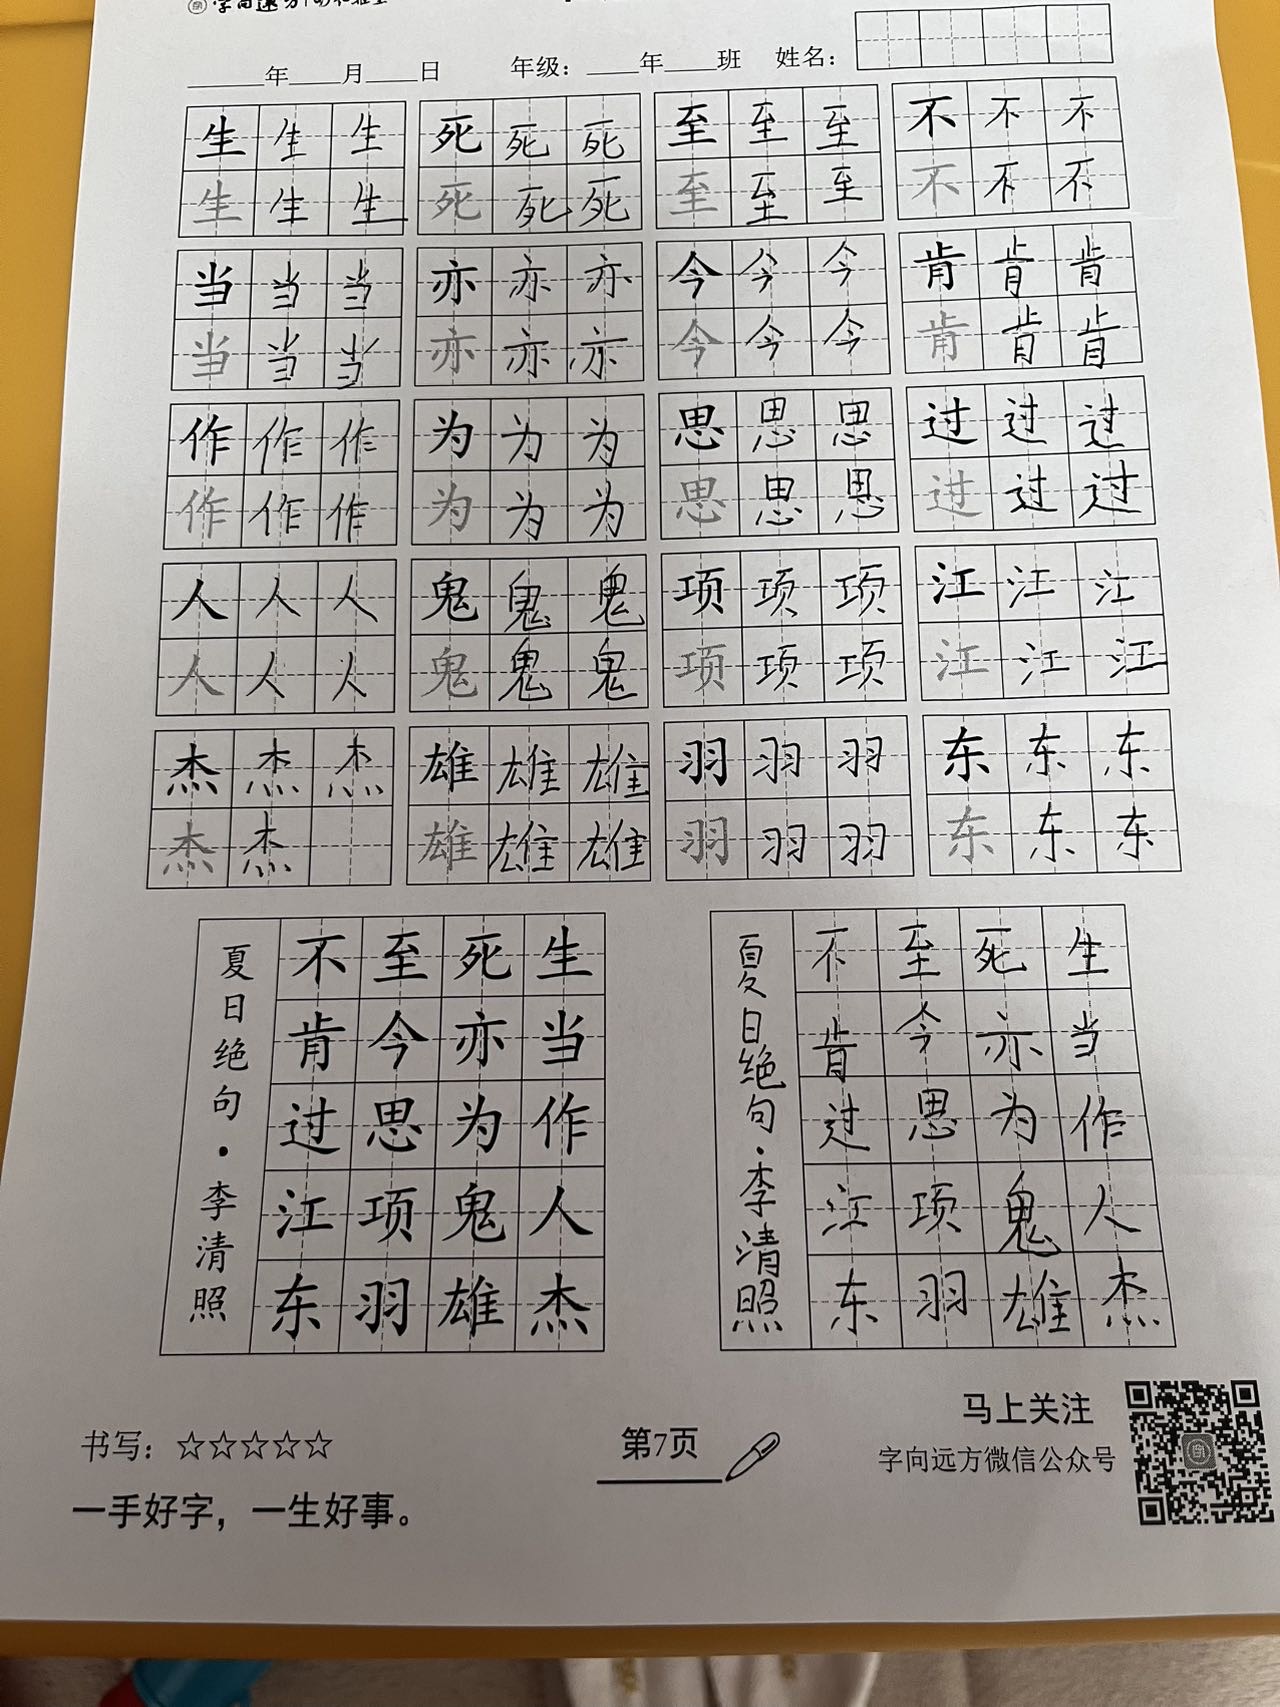 年 月 日 年级： 年 班 姓名：
生 生 生 死 死 死 至 至 至 不 不 不
生 生 生 死 死 死 至 至 至 不 不 不
当 当 当 亦 亦 亦 今 今 今 肯 肯 肯
当 当 当 亦 亦 亦 今 今 今 肯 肯 肯
作 作 作 为 为 为 思 思 思 过 过 过
作 作 作 为 为 为 思 思 思 过 过 过
人 人 人 鬼 鬼 鬼 项 项 项 江 江 江
人 人 人 鬼 鬼 鬼 项 项 项 江 江 江
杰 杰 杰 雄 雄 雄 羽 羽 羽 东 东 东
杰 杰 雄 雄 雄 羽 羽 羽 东 东 东
生当作人杰
死亦为鬼雄
至今思项羽
不肯过江东
夏日绝句·李清照
生当作人杰
死亦为鬼雄
至今思项羽
不肯过江东
夏日绝句·李清照
书写：☆☆☆☆☆
一手好字，一生好事。
第7页
马上关注
字向远方微信公众号